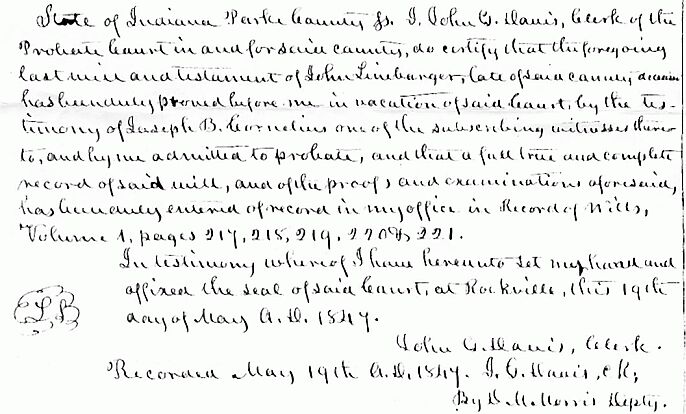 State of Indiana Parke County ss. I, John G. Davis, Clerk of the
Probate Court in and for said county, do certify that the foregoing
last will and testament of John Linebarger, late of said county, deceased
has been duly proved before me in vacation of said Court, by the tes-
timony of Joseph B. Cornelius one of the subscribing witnesses there
to, and by me admitted to probate, and that a full true and complete
record of said will, and of the proofs and examinations aforesaid,
has been duly entered of record in my office in Record of Wills,
Volume 1, pages 217, 218, 219, 220 & 221.
In testimony whereof I have hereunto set my hand and
affixed the seal of said Court, at Rockville, this 19th
day of May A.D. 1847.
John G. Davis, Clerk.
Recorded May 19th A.D. 1847. J. G. Davis, Ck,
By D. M. Morris Depty.